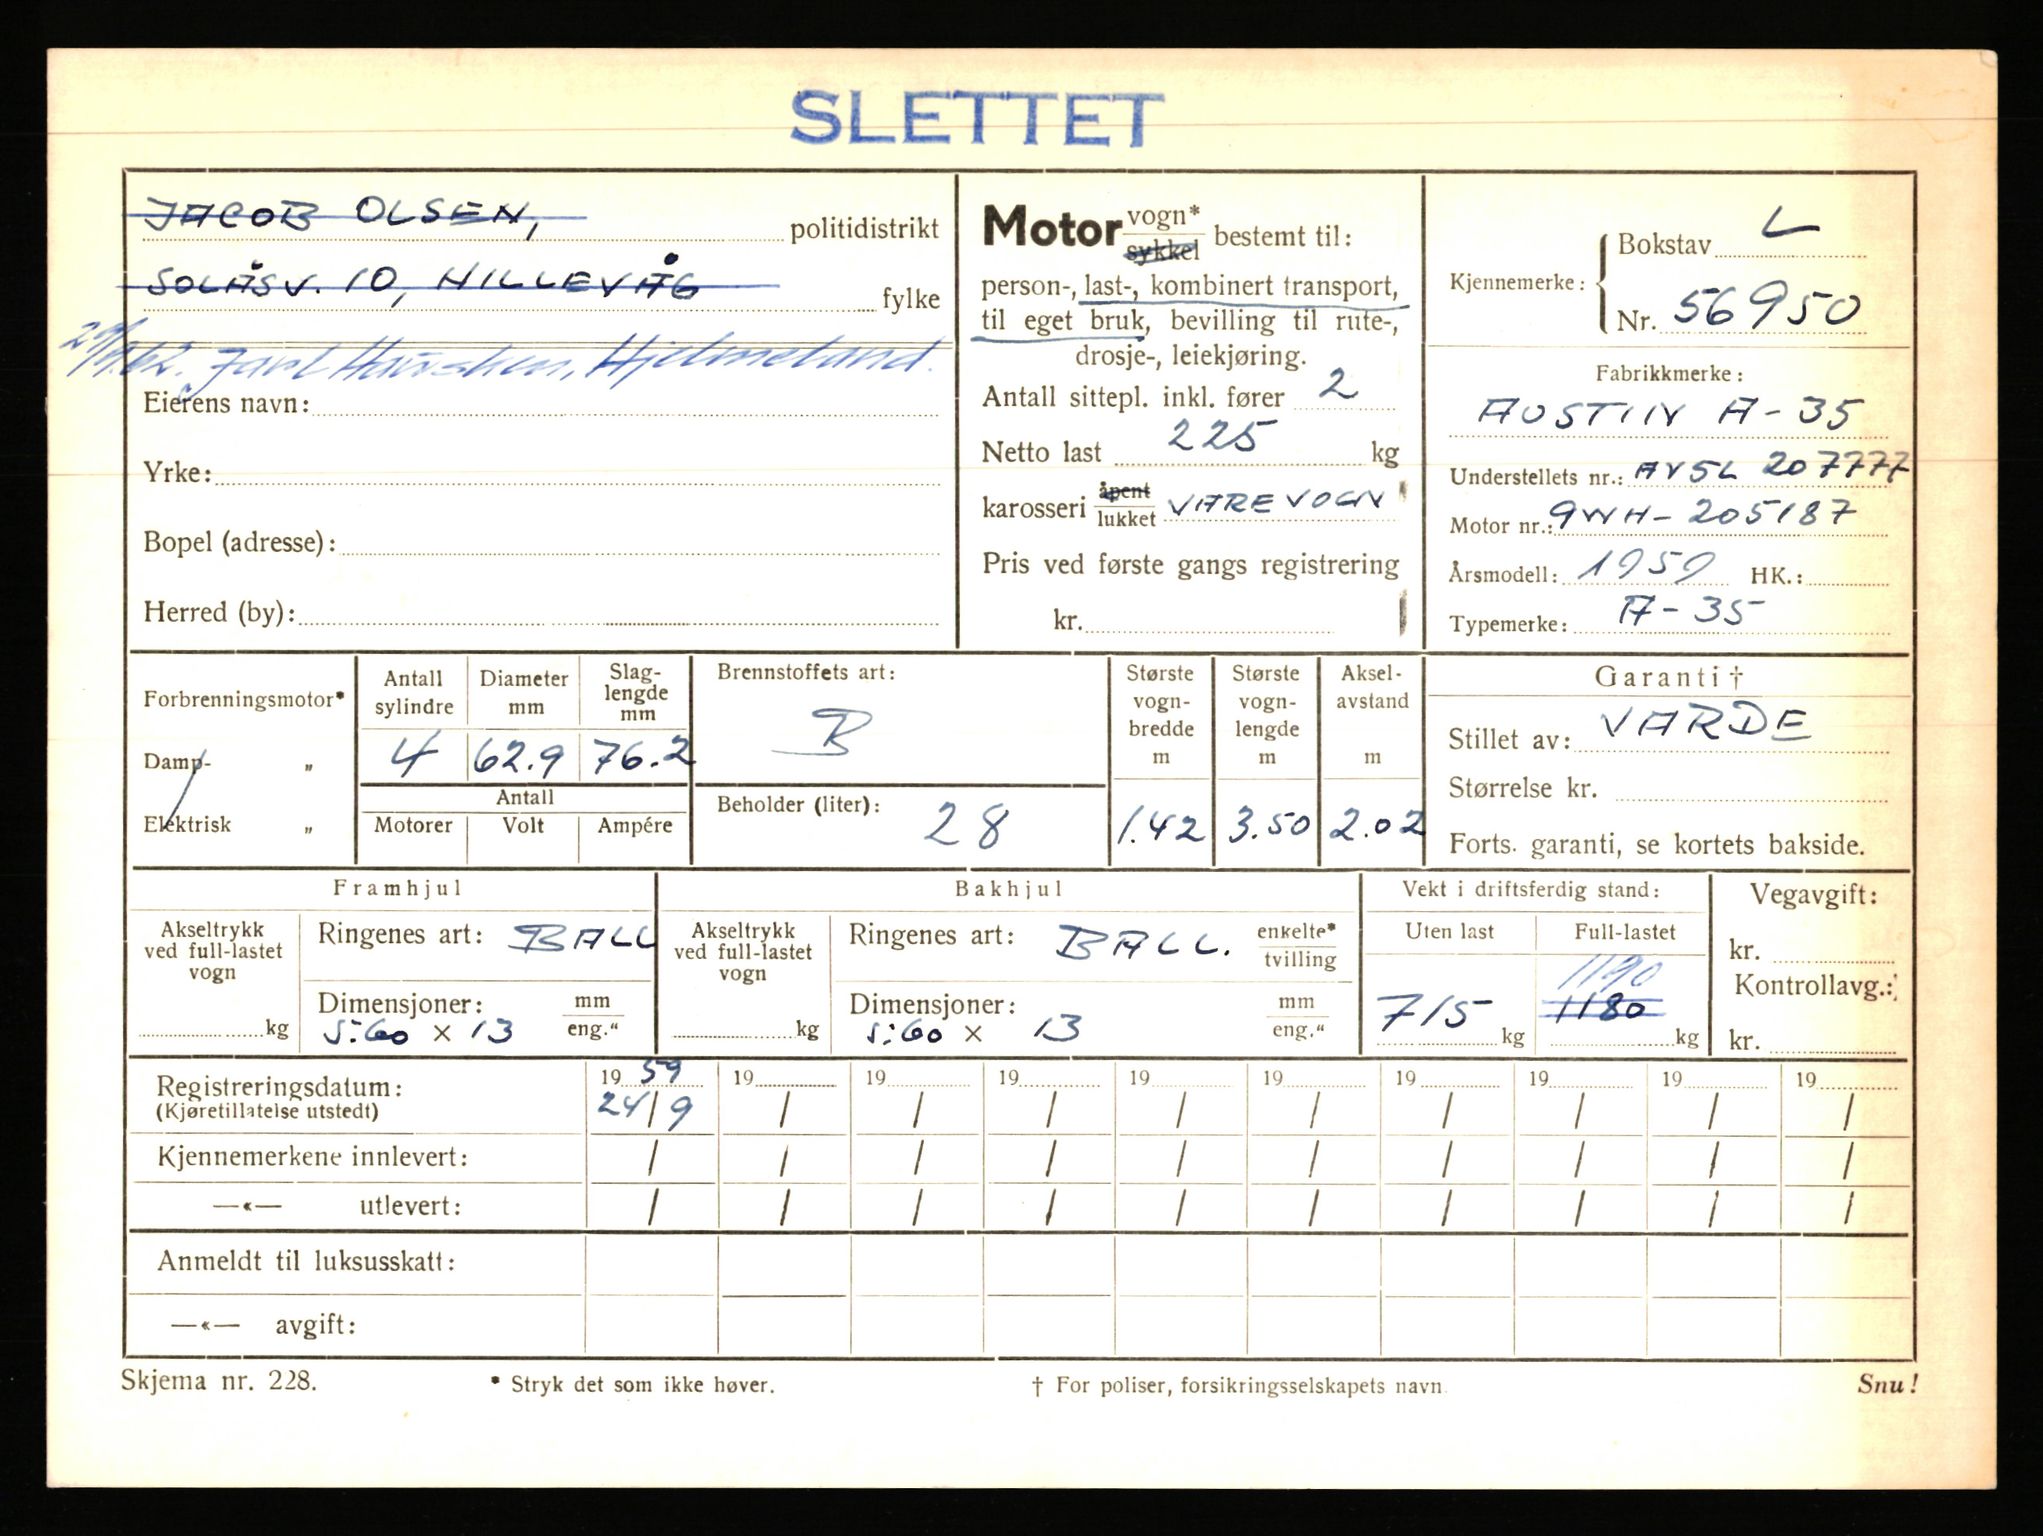 SLETTET
JACOB OLSEN, politidistrikt
SOLÅSV. 10, HILLEVÅG fylke
Hjelmeland.
Eierens navn:
Yrke:
Bopel (adresse):
Herred (by):
Motor vogn* sykkel bestemt til:
person-, last-, kombinert transport,
til eget bruk, bevilling til rute-,
drosje-, leiekjøring.
Antall sittepl. inkl. fører 2
Netto last 225 kg
karosseri åpent lukket VAREVOGN
Pris ved første gangs registrering
kr.
Kjennemerke: Bokstav L
Nr. 56950
Fabrikkmerke:
AUSTIN A-35
Understellets nr.: AV5L 207777
Motor nr.: 9WH-205187
Årsmodell: 1959 HK.:
Typemerke: A-35
Forbrenningsmotor*
Damp- "
Elektrisk "
Antall sylindre Diameter mm Slag-lengde mm
4 62.9 76.2
Antall
Motorer Volt Ampére
Brennstoffets art:
B
Beholder (liter): 28
Største vogn-bredde m Største vogn-lengde m Aksel-avstand m
1.42 3.50 2.02
Garanti †
Stillet av: VARDE
Størrelse kr.
Forts. garanti, se kortets bakside.
Framhjul
Akseltrykk ved full-lastet vogn
kg
Ringenes art: BALL
Dimensjoner: mm eng."
5.60 × 13
Bakhjul
Akseltrykk ved full-lastet vogn
kg
Ringenes art: BALL. enkelte* tvilling
Dimensjoner: mm eng."
5.60 × 13
Vekt i driftsferdig stand:
Uten last Full-lastet
1190
715 kg 1180 kg
Vegavgift:
kr.
Kontrollavg.:
kr.
Registreringsdatum: 19 59 19 19 19 19 19 19 19 19 19
(Kjøretillatelse utstedt) 24/9 / / / / / / / / /
Kjennemerkene innlevert: / / / / / / / / / /
—«— utlevert: / / / / / / / / / /
Anmeldt til luksusskatt:
—«— avgift:
Skjema nr. 228. * Stryk det som ikke høver. † For poliser, forsikringsselskapets navn. Snu!